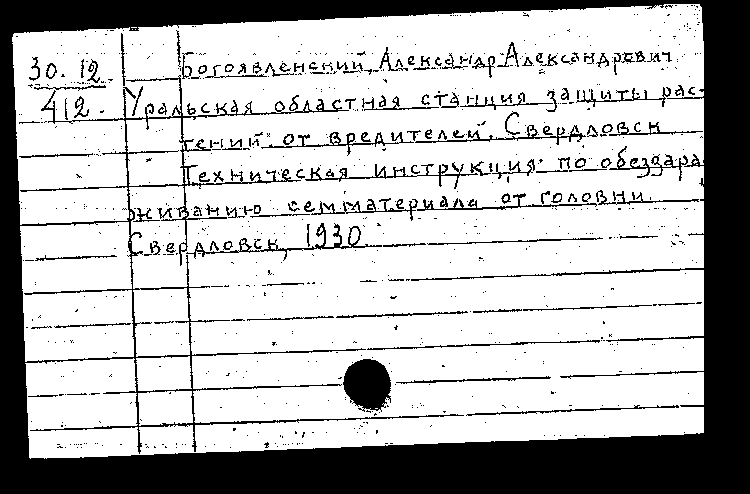 30.12.
412.
Богоявленский, Александр Александрович
Уральская областная станция защиты рас-
тений от вредителей. Свердловск
Техническая инструкция по обеззара-
живанию семматериала от головни.
Свердловск, 1930